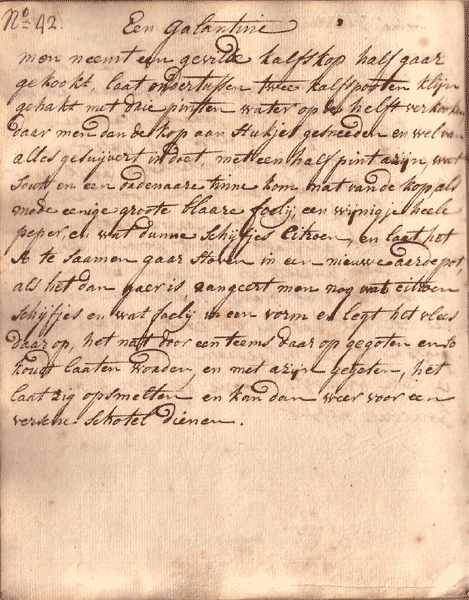 No 42. Een Galantine
men neemt een gevilde kalfskop half gaar
gekookt, laat ondertussen twee kalfspooten klijn
gehakt met drie pinten water op de helft verkooken
daar men dan de kop aan stukjes gesneeden en wel van
alles gesuijvert in doet, met een half pint azijn, wat
sout en een tinne kom nat van de kop als
mede eenige groote blaare foelij, een wijnigje heele
peper en wat dunne schijfjes Citroen, en laat het
te saamen gaar stoven in een nieuwe aarde pot,
als het dan gaer is rangeert men nog wat citroen
schijfjes en wat foelij in een vorm en legt het vlees
daar op, het natt door een teems daar op gegoten en so
koudt laaten worden, en met azijn gegeten, het
laat zig opsmelten en kan dan weer voor een
verse schotel dienen.